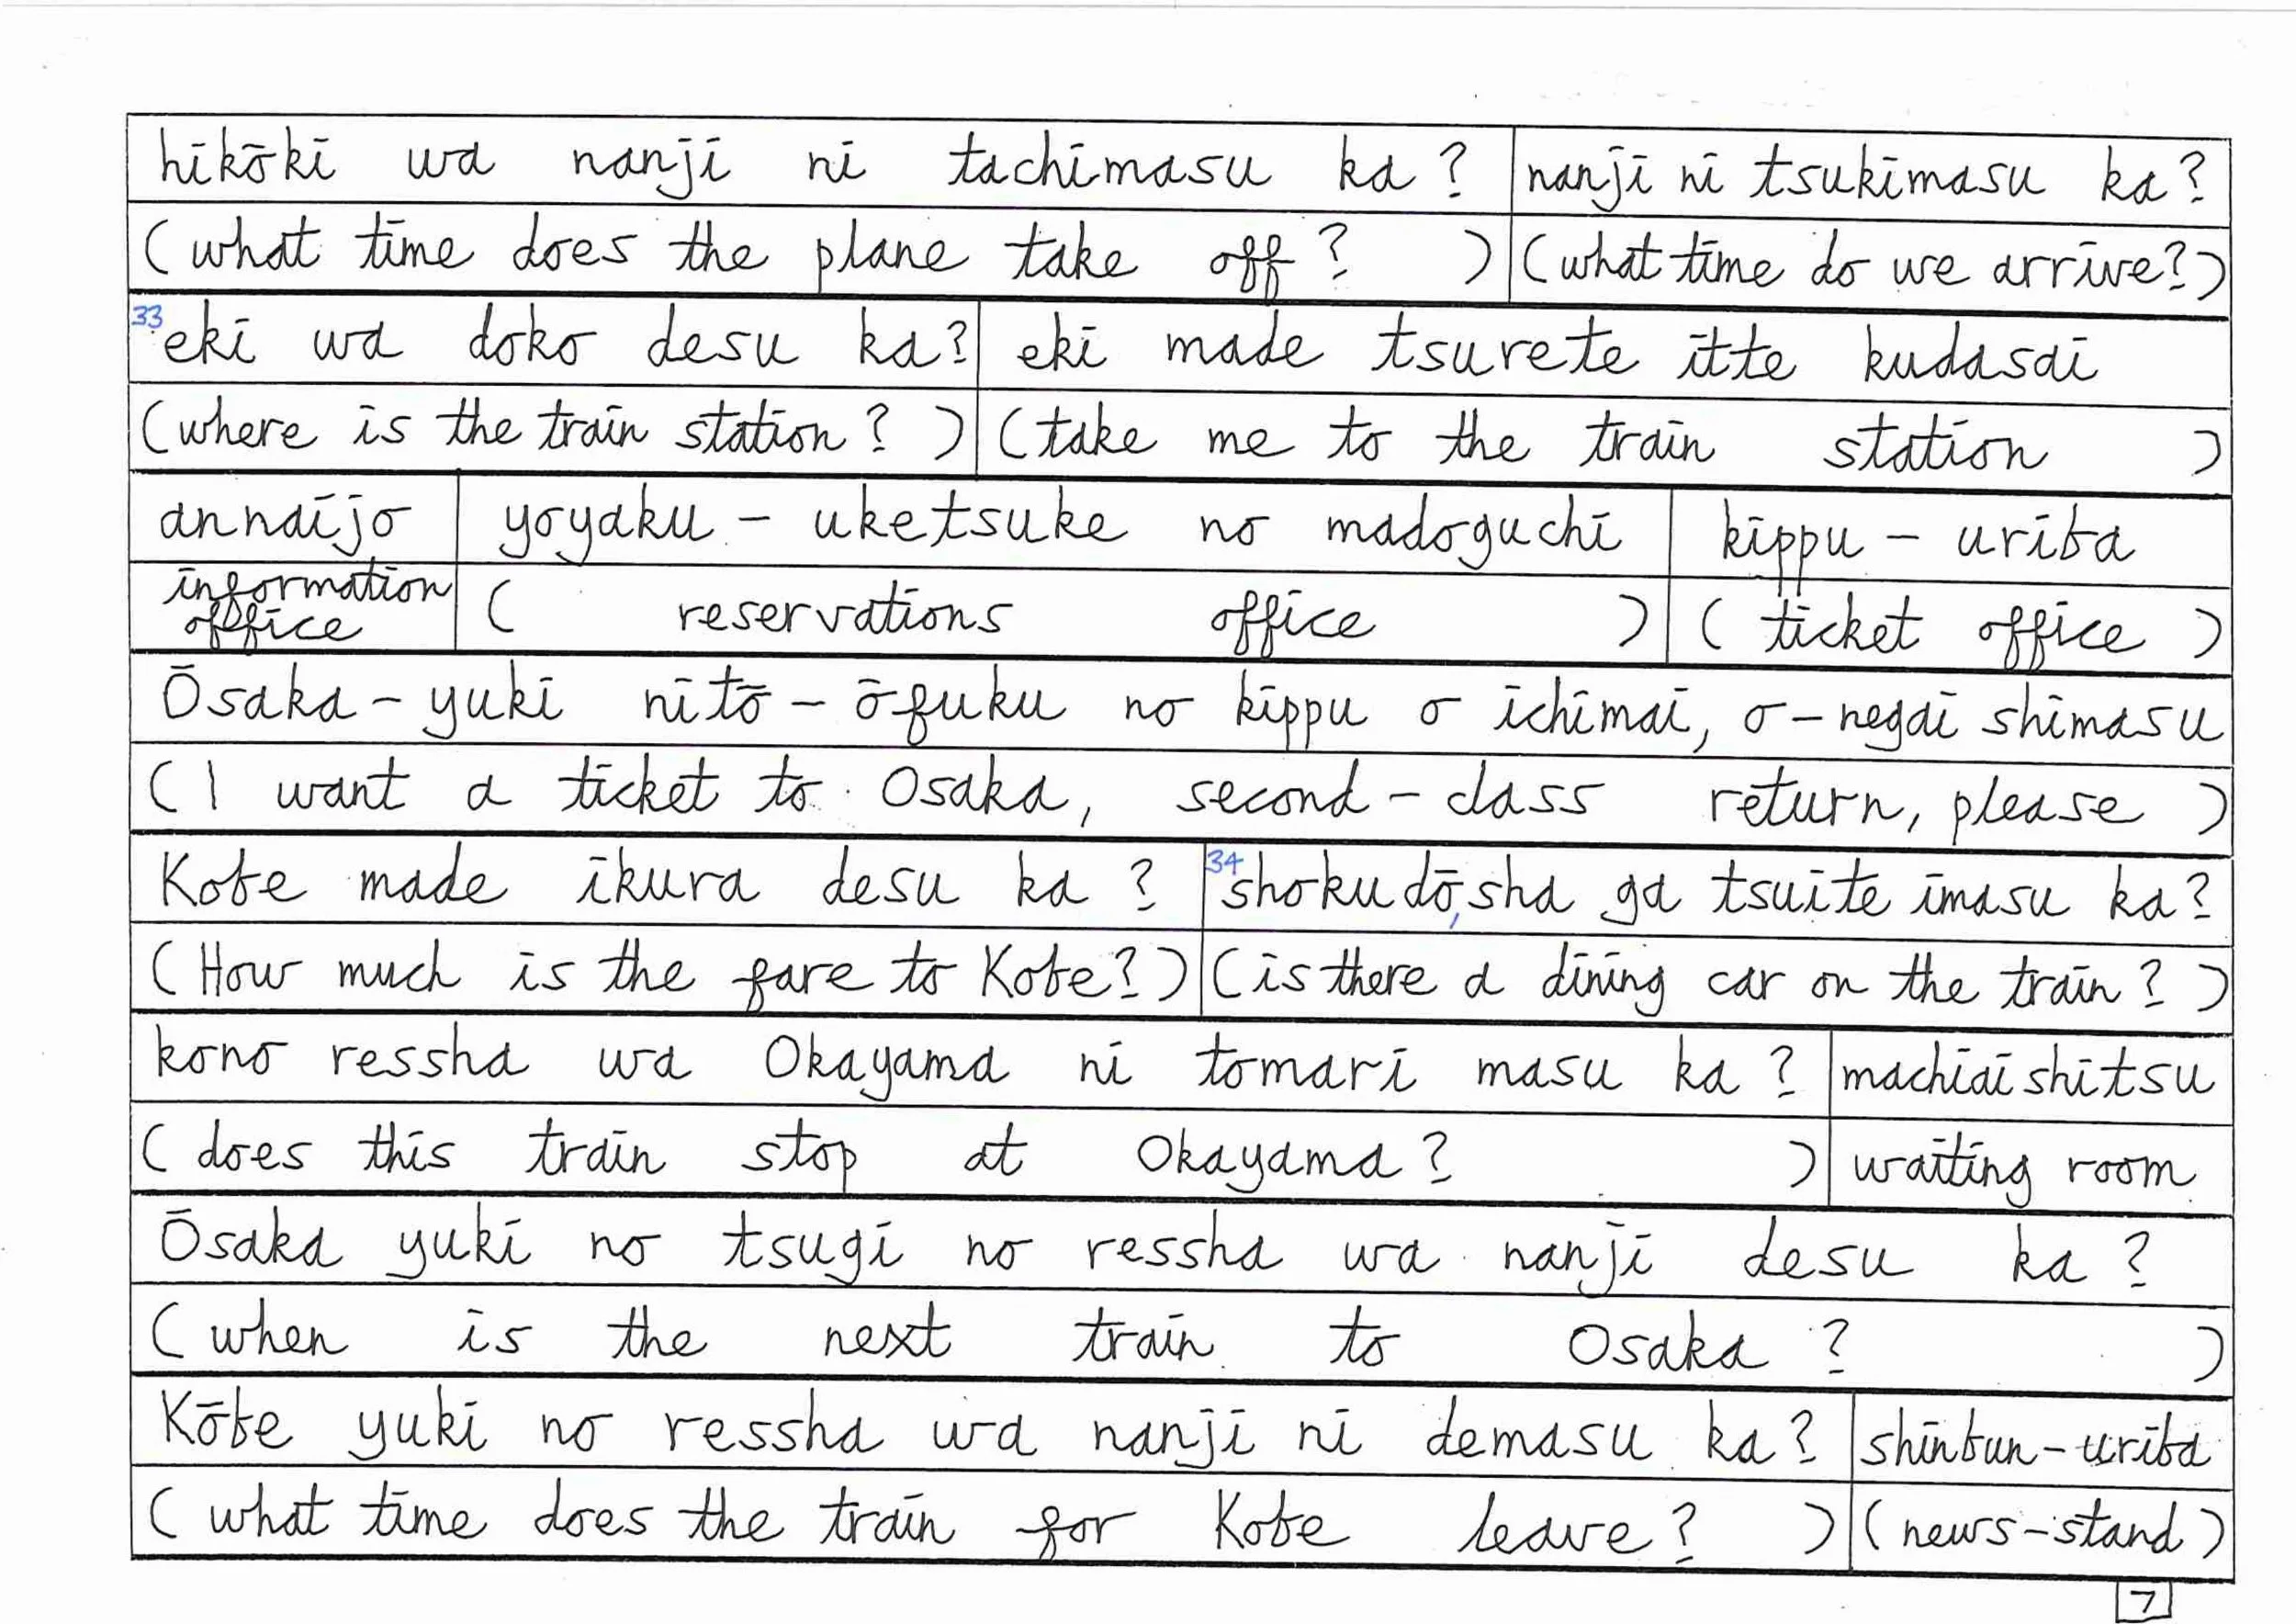 hikōki wa nanji ni tachimasu ka? nanji ni tsukimasu ka?
(what time does the plane take off? ) (what time do we arrive?)
33 eki wa doko desu ka? eki made tsurete itte kudasai
(where is the train station? ) (take me to the train station )
annaijo yoyaku - uketsuke no madoguchi kippu - uriba
information office ( reservations office ) ( ticket office )
Ōsaka - yuki nitō - ōfuku no kippu o ichimai, o-negai shimasu
(I want a ticket to Osaka, second-class return, please )
Kobe made ikura desu ka? 34 shokudō,sha ga tsuite imasu ka?
(How much is the fare to Kobe?) (is there a dining car on the train? )
kono ressha wa Okayama ni tomari masu ka? machiai shitsu
(does this train stop at Okayama? ) waiting room
Ōsaka yuki no tsugi no ressha wa nanji desu ka?
(when is the next train to Osaka? )
Kōbe yuki no ressha wa nanji ni demasu ka? shinbun-uriba
(what time does the train for Kobe leave? ) (news-stand)
7